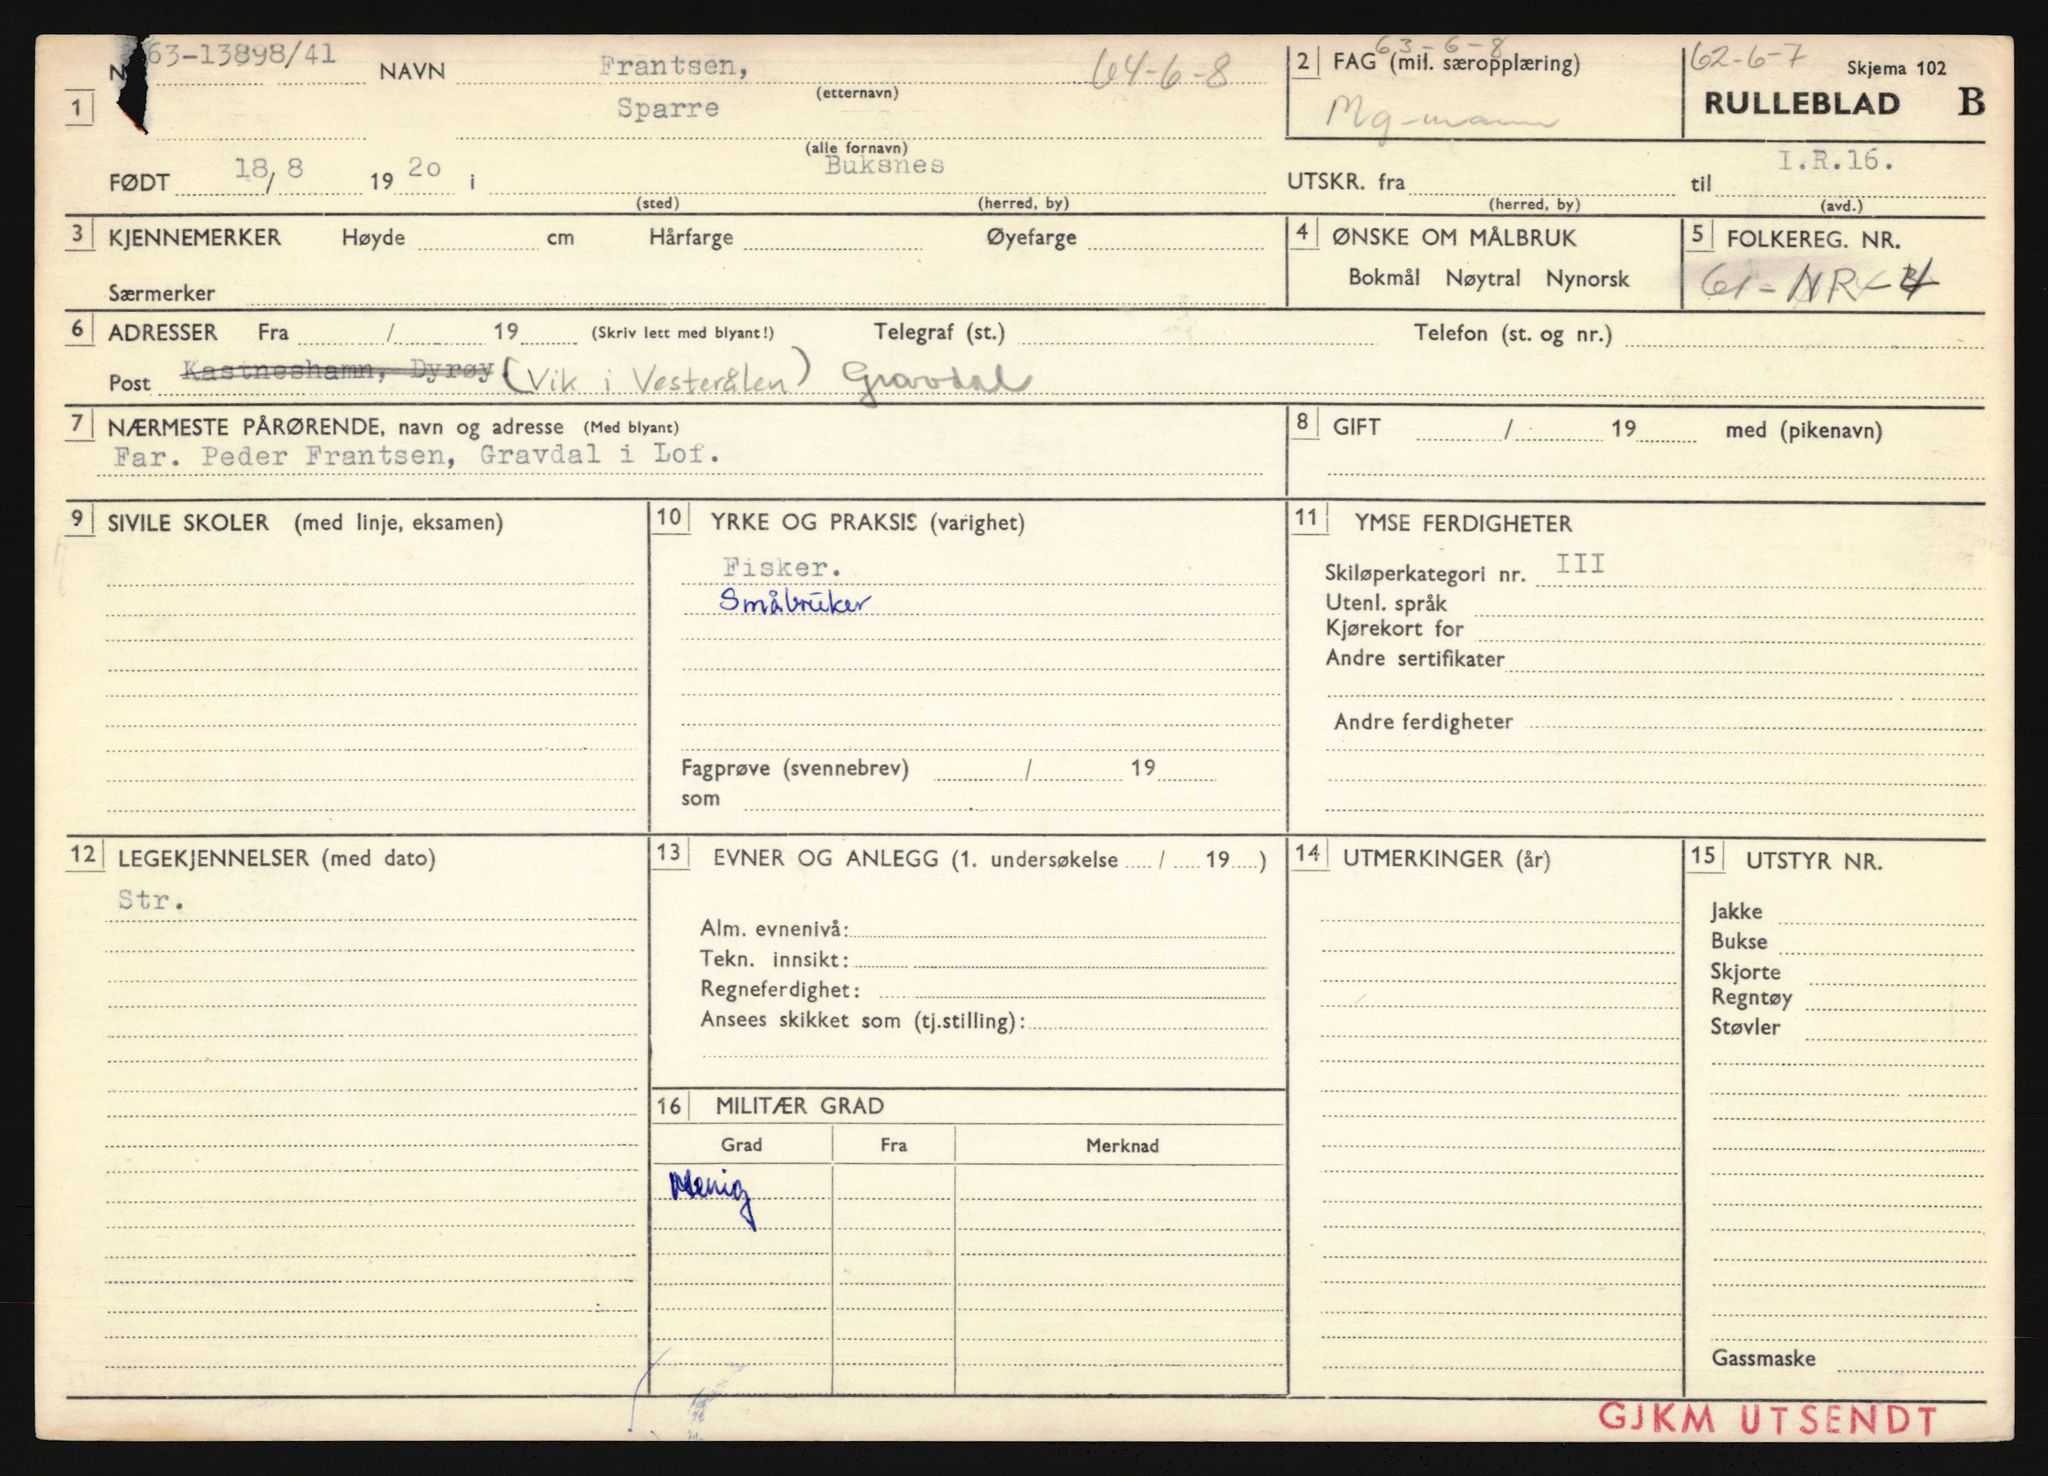 63-13898/41 NAVN Frantsen, 64-6-8 2 FAG (mil. særopplæring) 63-6-8 62-6-7 Skjema 102
(etternavn)
1 Sparre Mg-mann RULLEBLAD B
(alle fornavn)
FØDT 18/8 1920 i Buksnes UTSKR. fra til I.R.16.
(sted) (herred, by) (herred, by) (avd.)
3 KJENNEMERKER Høyde cm Hårfarge Øyefarge 4 ØNSKE OM MÅLBRUK 5 FOLKEREG. NR.
Særmerker Bokmål Nøytral Nynorsk 61-NR-4
6 ADRESSER Fra / 19 (Skriv lett med blyant!) Telegraf (st.) Telefon (st. og nr.)
Post Kastneshamn, Dyrøy (Vik i Vesterålen) Gravdal
7 NÆRMESTE PÅRØRENDE, navn og adresse (Med blyant) 8 GIFT / 19 med (pikenavn)
Far. Peder Frantsen, Gravdal i Lof.
9 SIVILE SKOLER (med linje, eksamen) 10 YRKE OG PRAKSIS (varighet) 11 YMSE FERDIGHETER
Fisker. Skiløperkategori nr. III
Småbruker Utenl. språk
Kjørekort for
Andre sertifikater
Andre ferdigheter
Fagprøve (svennebrev) / 19
som
12 LEGEKJENNELSER (med dato) 13 EVNER OG ANLEGG (1. undersøkelse / 19 ) 14 UTMERKINGER (år) 15 UTSTYR NR.
Str. Jakke
Alm. evnenivå: Bukse
Tekn. innsikt: Skjorte
Regneferdighet: Regntøy
Ansees skikket som (tj.stilling): Støvler
16 MILITÆR GRAD
Grad Fra Merknad
Menig
Gassmaske
GJKM UTSENDT